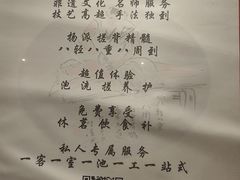 非遗文化名师服务
技艺高超手法独到
扬派搓背精髓
八轻八重八周到
超值体验
泡洗搓养护
免费享受
休茗饮食补
私人专属服务
一客一室一池一工一站式